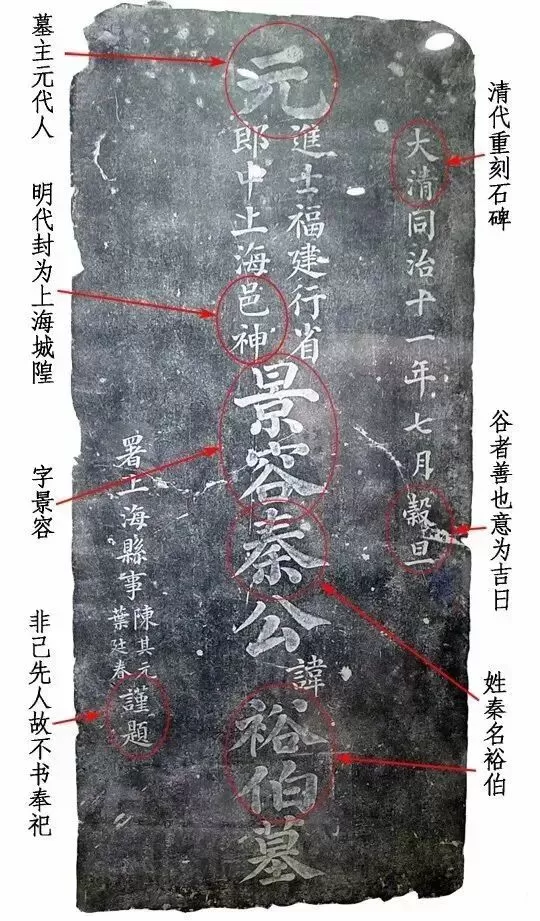 墓主元代人
明代封为上海城隍
字景容
非己先人故不书奉祀
清代重刻石碑
谷者善也意为吉日
姓秦名裕伯
大清同治十一年七月穀旦
元
進士福建行省
郎中上海邑神
景容秦公
諱
裕伯墓
署上海縣事
陳其元
葉廷春
謹題